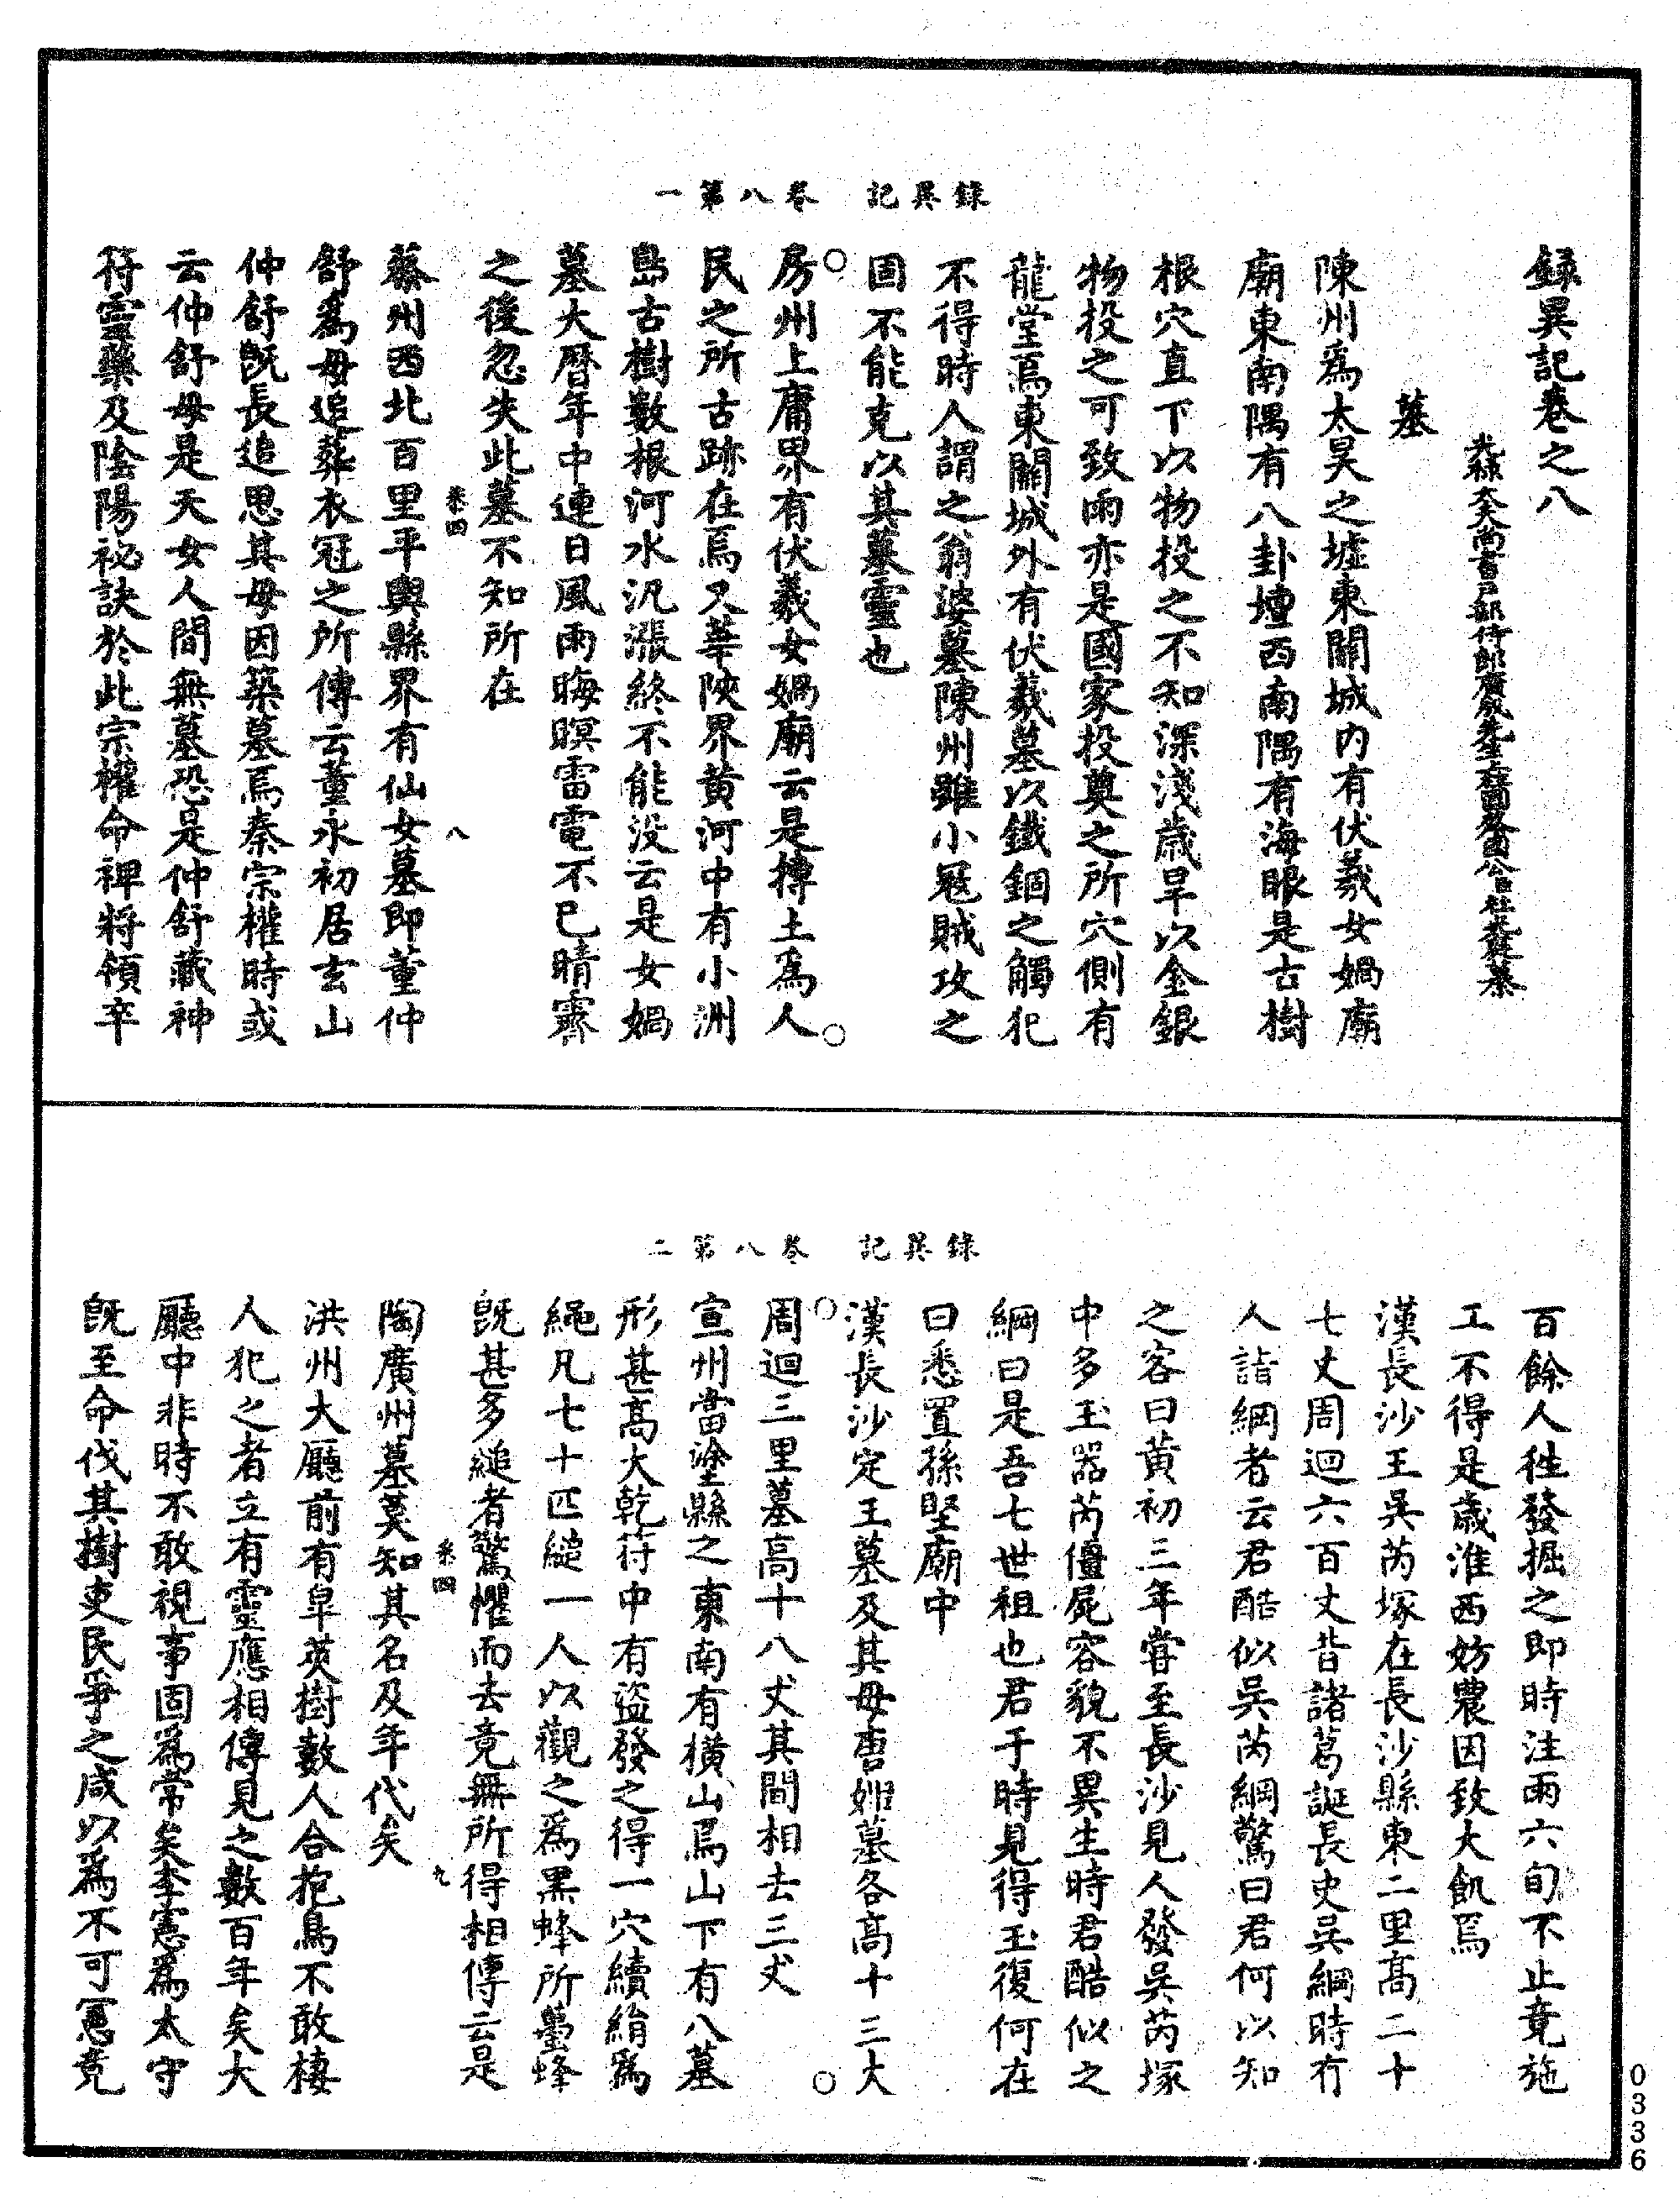 錄異記 卷八第一
録異記卷之八
光祿大夫尚書戶部侍郎廣成先生上柱國蔡國公臣杜光庭纂
墓
陳州爲太昊之墟東關城内有伏羲女媧廟
廟東南隅有八卦壇西南隅有海眼是古樹
根穴直下以物投之不知深淺歲旱以金銀
物投之可致雨亦是國家投奠之所穴側有
龍堂焉東關城外有伏羲墓以鐵錮之觸犯
不得時人謂之翁婆墓陳州雖小冦賊攻之
固不能克以其墓靈也
房州上庸界有伏羲女媧廟云是摶土爲人
民之所古跡在焉又華陝界黄河中有小洲
島古樹數根河水汎漲終不能没云是女媧
墓大曆年中連日風雨晦暝雷電不已晴霽
之後忽失此墓不知所在
桒四 八
蔡州西北百里平輿縣界有仙女墓即董仲
舒爲母追葬衣冠之所傳云董永初居玄山
仲舒旣長追思其母因築墓焉秦宗權時或
云仲舒母是天女人間無墓恐是仲舒藏神
符靈藥及陰陽祕訣於此宗權命裨將領卒
錄異記 卷八第二
百餘人徃發掘之即時注雨六旬不止竟施
工不得是歲淮西妨農因致大飢焉
漢長沙王吳芮塚在長沙縣東二里髙二十
七丈周迴六百丈昔諸葛誕長史吳綱時有
人詣綱者云君酷似吳芮綱驚曰君何以知
之客曰黄初三年嘗至長沙見人發吳芮塚
中多玉器芮僵屍容貌不異生時君酷似之
綱曰是吾七世祖也君于時見得玉復何在
曰悉置孫堅廟中
漢長沙定王墓及其母唐姬墓各髙十三大
周迴三里墓高十八丈其間相去三丈
宣州當塗縣之東南有橫山焉山下有八墓
形甚髙大乾符中有盜發之得一穴續絹爲
繩凡七十匹縋一人以觀之爲黒蜂所蠆蜂
旣甚多縋者驚懼而去竟無所得相傳云是
桒四 九
陶廣州墓莫知其名及年代矣
洪州大廳前有皁莢樹數人合抱鳥不敢棲
人犯之者立有靈應相傳見之數百年矣大
廳中非時不敢視事固爲常矣李憲爲太守
旣至命伐其樹吏民爭之咸以爲不可憲竟
0336